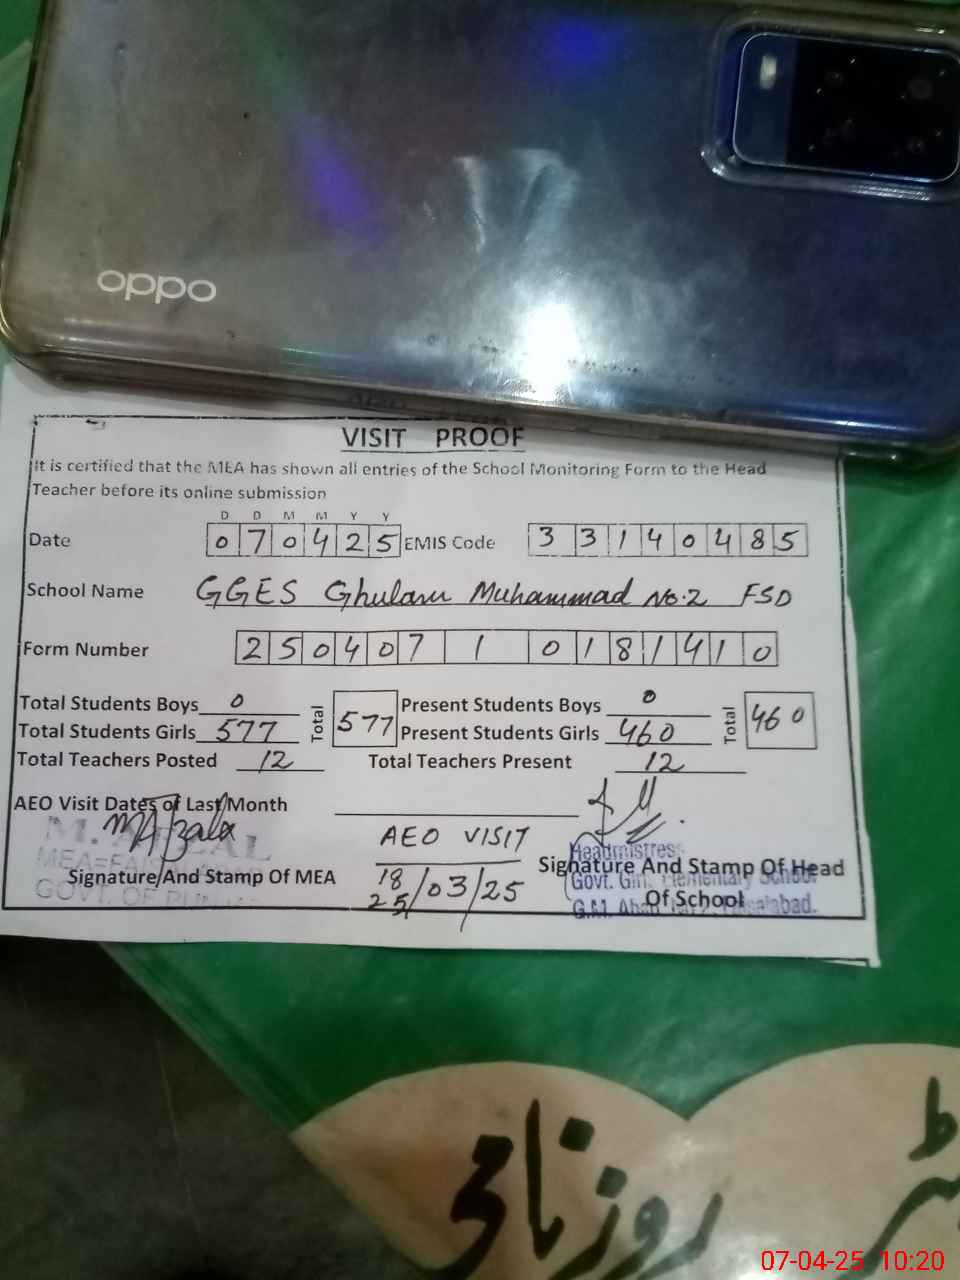 oppo
VISIT PROOF
It is certified that the MEA has shown all entries of the School Monitoring Form to the Head
Teacher before its online submission
D D M M Y Y
Date 0 7 0 4 2 5 EMIS Code 3 3 1 4 0 4 8 5
School Name GGES Ghulam Muhammad No.2 FSD
Form Number 2 5 0 4 0 7 1 0 1 8 1 4 1 0
Total Students Boys 0 Total 577 Present Students Boys 0 Total 460
Total Students Girls 577 Present Students Girls 460
Total Teachers Posted 12 Total Teachers Present 12
AEO Visit Dates of Last Month
AEO VISIT
18
25/03/25
M. AFZAL
Signature And Stamp Of MEA
GOVT. OF
Headmistress
Signature And Stamp Of Head
Govt. Girls Elementary School
Of School
G.M. Abad
روزنامچی
07-04-25 10:20